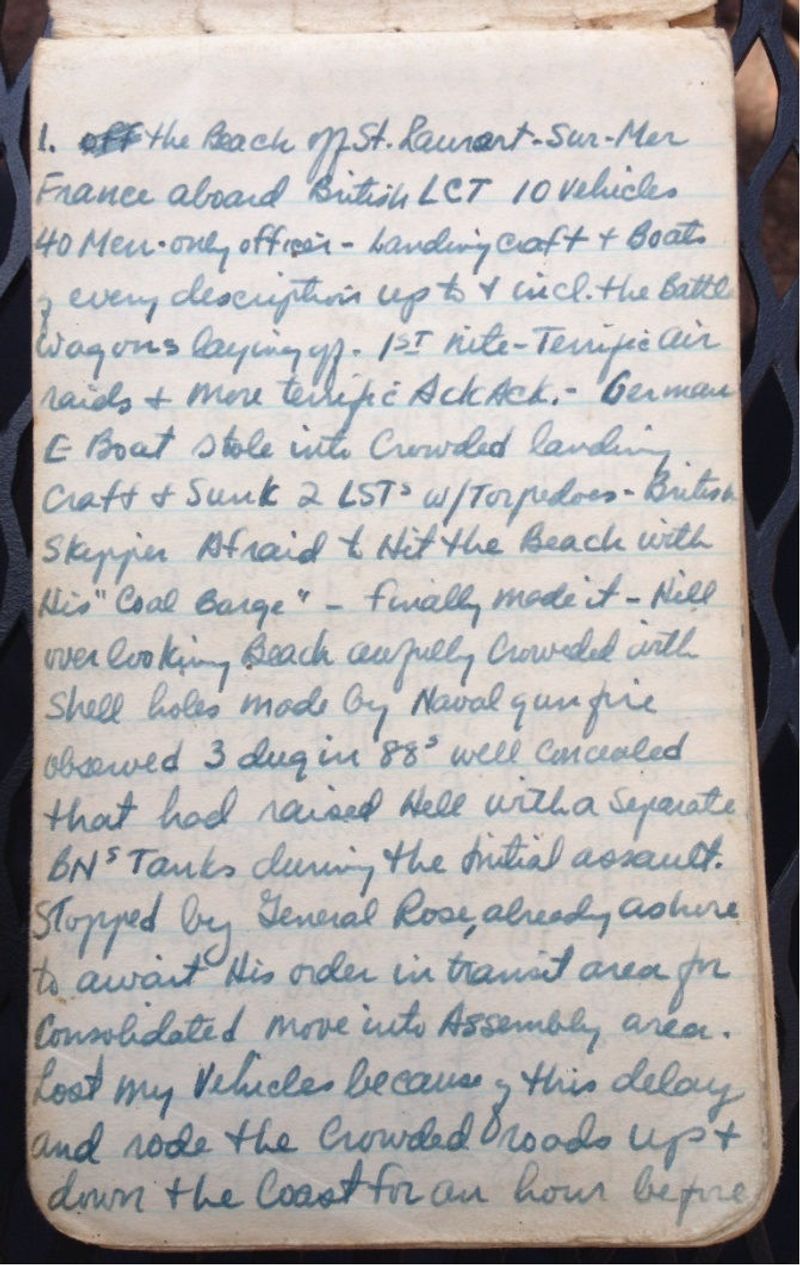 1. off the Beach off St. Laurent-Sur-Mer
France aboard British LCT 10 vehicles
40 Men-only officer - Landing craft + Boats
of every description up to & incl. the Battle
Wagons laying off. 1ST nite-Terrific air
raids + more terrific Ack Ack. - German
E Boat stole into Crowded landing
Craft & Sunk 2 LSTs w/Torpedoes - British
Skipper Afraid to Hit the Beach with
His "Coal Barge" - finally made it - Hill
overlooking Beach awfully Crowded with
Shell holes made by Naval gunfire
observed 3 dug in 88s well Concealed
that had raised Hell with a Separate
BNs Tanks during the initial assault.
Stopped by General Rose, already ashore
to await His order in transit area for
Consolidated move into Assembly area.
Lost my Vehicles because of this delay
and rode the Crowded roads up +
down the Coast for an hour before